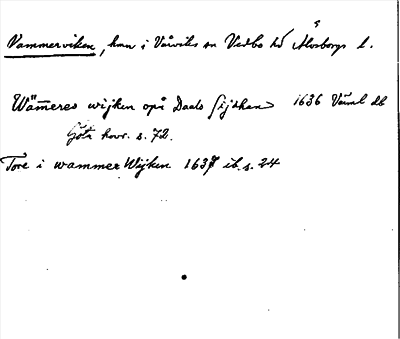 Vammerviken, hmn i Vårviks sn Vedbo hd Älvsborgs l.
Wām̄eres wijken opå Daals sijdhan 1636 Värml db
Göta hovr. s. 72.
Tore i wammer Wijken 1637 ib. s. 24